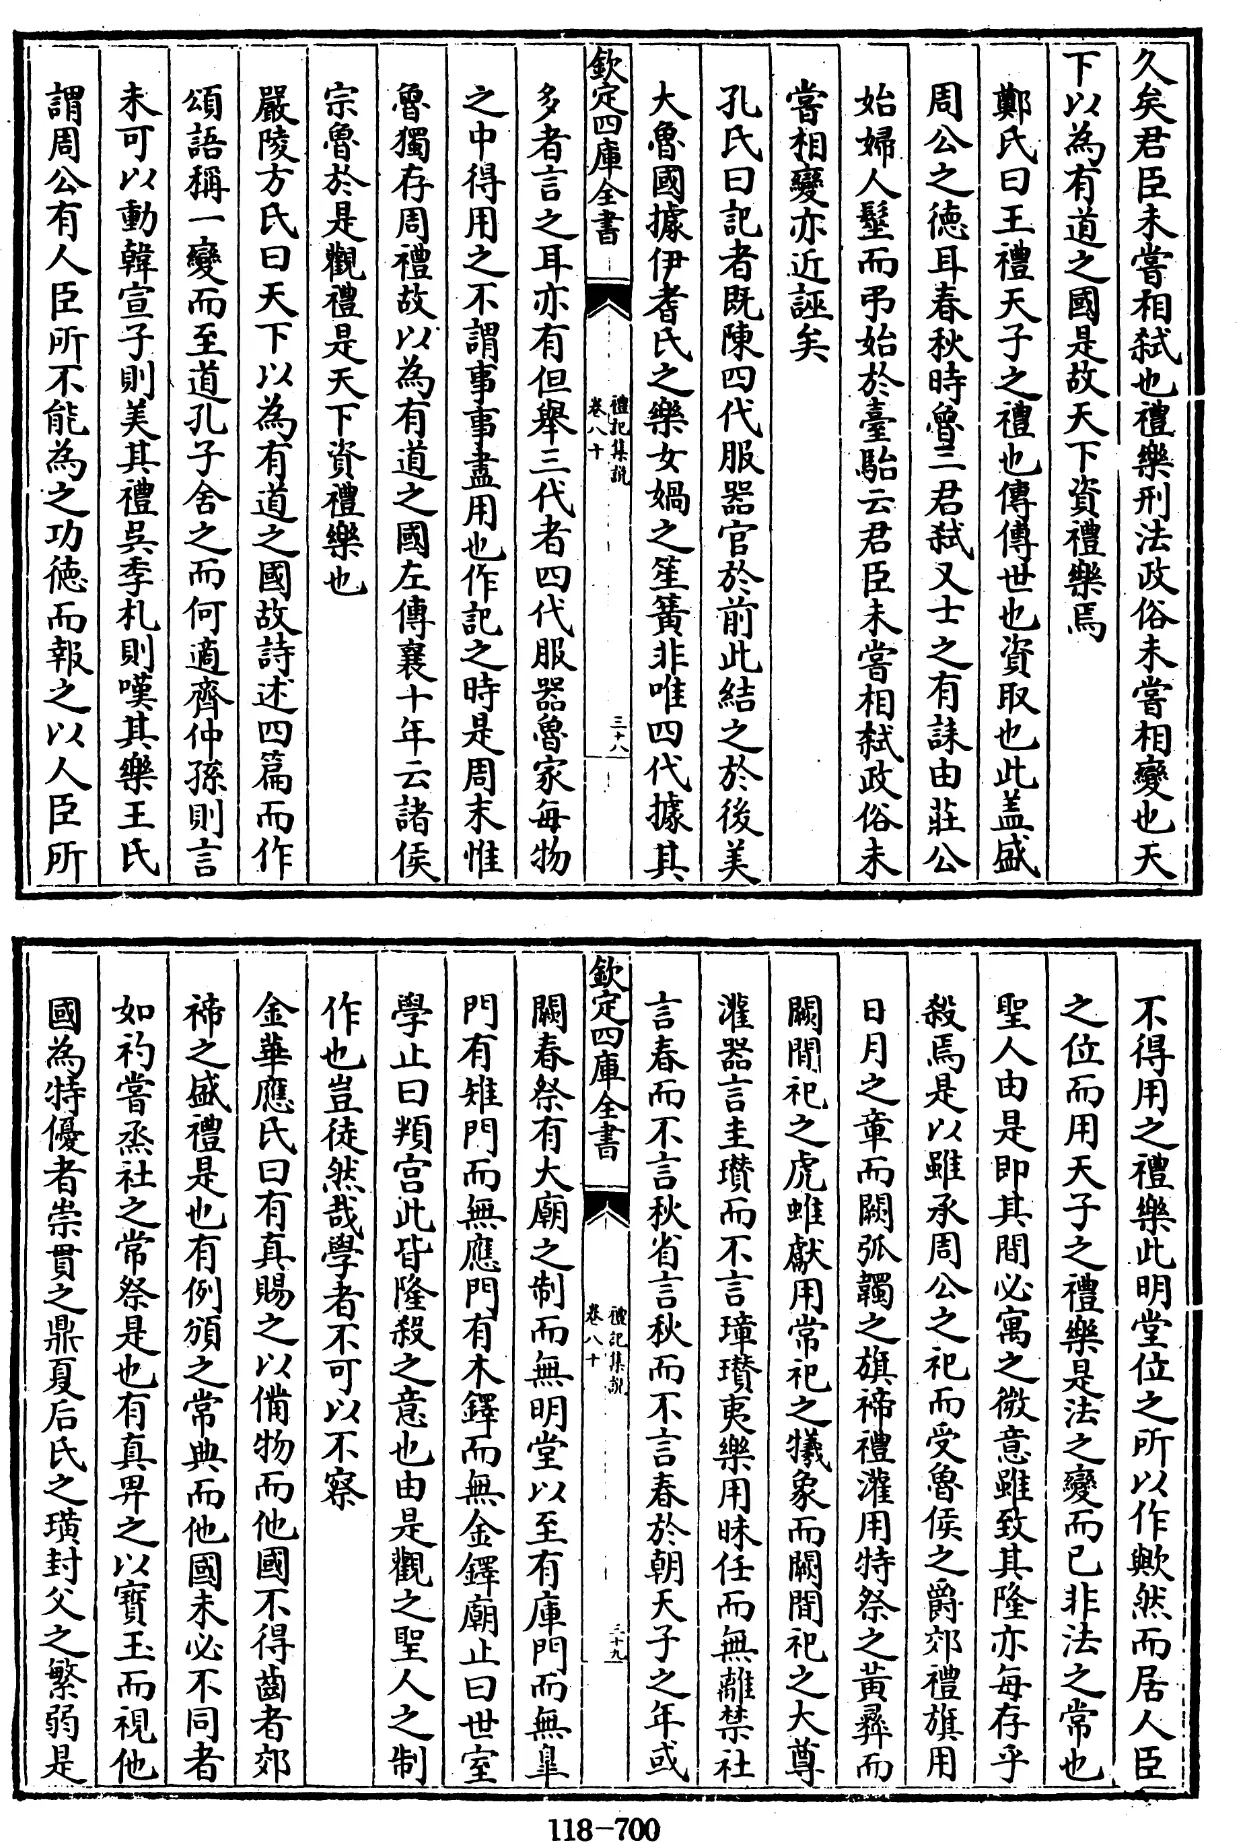 久矣君臣未嘗相弑也禮樂刑法政俗未嘗相變也天
下以為有道之國是故天下資禮樂焉
鄭氏曰王禮天子之禮也傳傳世也資取也此蓋盛
周公之徳耳春秋時魯三君弑又士之有誄由莊公
始婦人髽而弔始於臺駘云君臣未嘗相弑政俗未
嘗相變亦近誣矣
孔氏曰記者既陳四代服器官於前此結之於後美
大魯國據伊耆氏之樂女媧之笙簧非唯四代據其
欽定四庫全書
禮記集說
卷八十
三十八
多者言之耳亦有但舉三代者四代服器魯家每物
之中得用之不謂事事盡用也作記之時是周末惟
魯獨存周禮故以為有道之國左傳襄十年云諸侯
宗魯於是觀禮是天下資禮樂也
嚴陵方氏曰天下以為有道之國故詩述四篇而作
頌語稱一變而至道孔子舍之而何適齊仲孫則言
未可以動韓宣子則美其禮吳季札則嘆其樂王氏
謂周公有人臣所不能為之功徳而報之以人臣所
不得用之禮樂此明堂位之所以作歟然而居人臣
之位而用天子之禮樂是法之變而已非法之常也
聖人由是即其間必寓之微意雖致其隆亦每存乎
殺焉是以雖承周公之祀而受魯侯之爵郊禮旗用
日月之章而闕弧韣之旗禘禮灌用特祭之黃彞而
闕間祀之虎蜼獻用常祀之犧象而闕間祀之大尊
灌器言圭瓚而不言璋瓚夷樂用昧任而無離禁社
言春而不言秋省言秋而不言春於朝天子之年或
欽定四庫全書
禮記集說
卷八十
三十九
闕春祭有大廟之制而無明堂以至有庫門而無臯
門有雉門而無應門有木鐸而無金鐸廟止曰世室
學止曰頖宫此皆隆殺之意也由是觀之聖人之制
作也豈徒然哉學者不可以不察
金華應氏曰有真賜之以備物而他國不得齒者郊
禘之盛禮是也有例頒之常典而他國未必不同者
如礿嘗烝社之常祭是也有真畀之以寳玉而視他
國為特優者崇貫之鼎夏后氏之璜封父之繁弱是
118-700